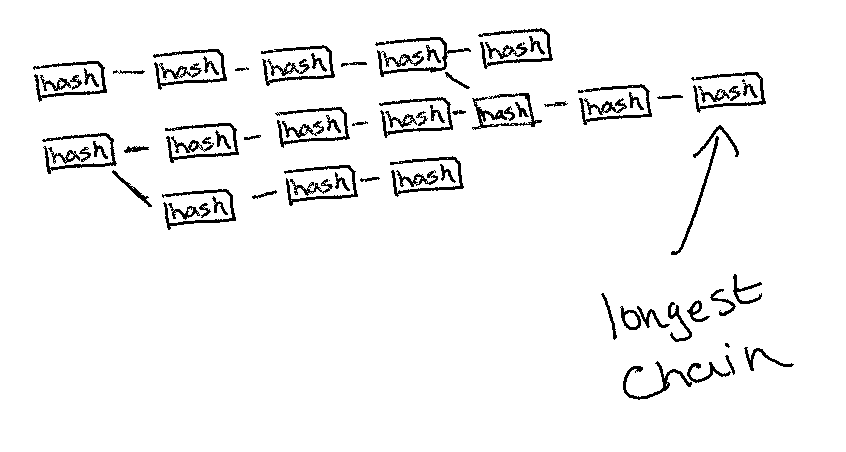 hash hash hash hash hash
hash hash hash hash hash hash hash
hash hash hash
longest
chain